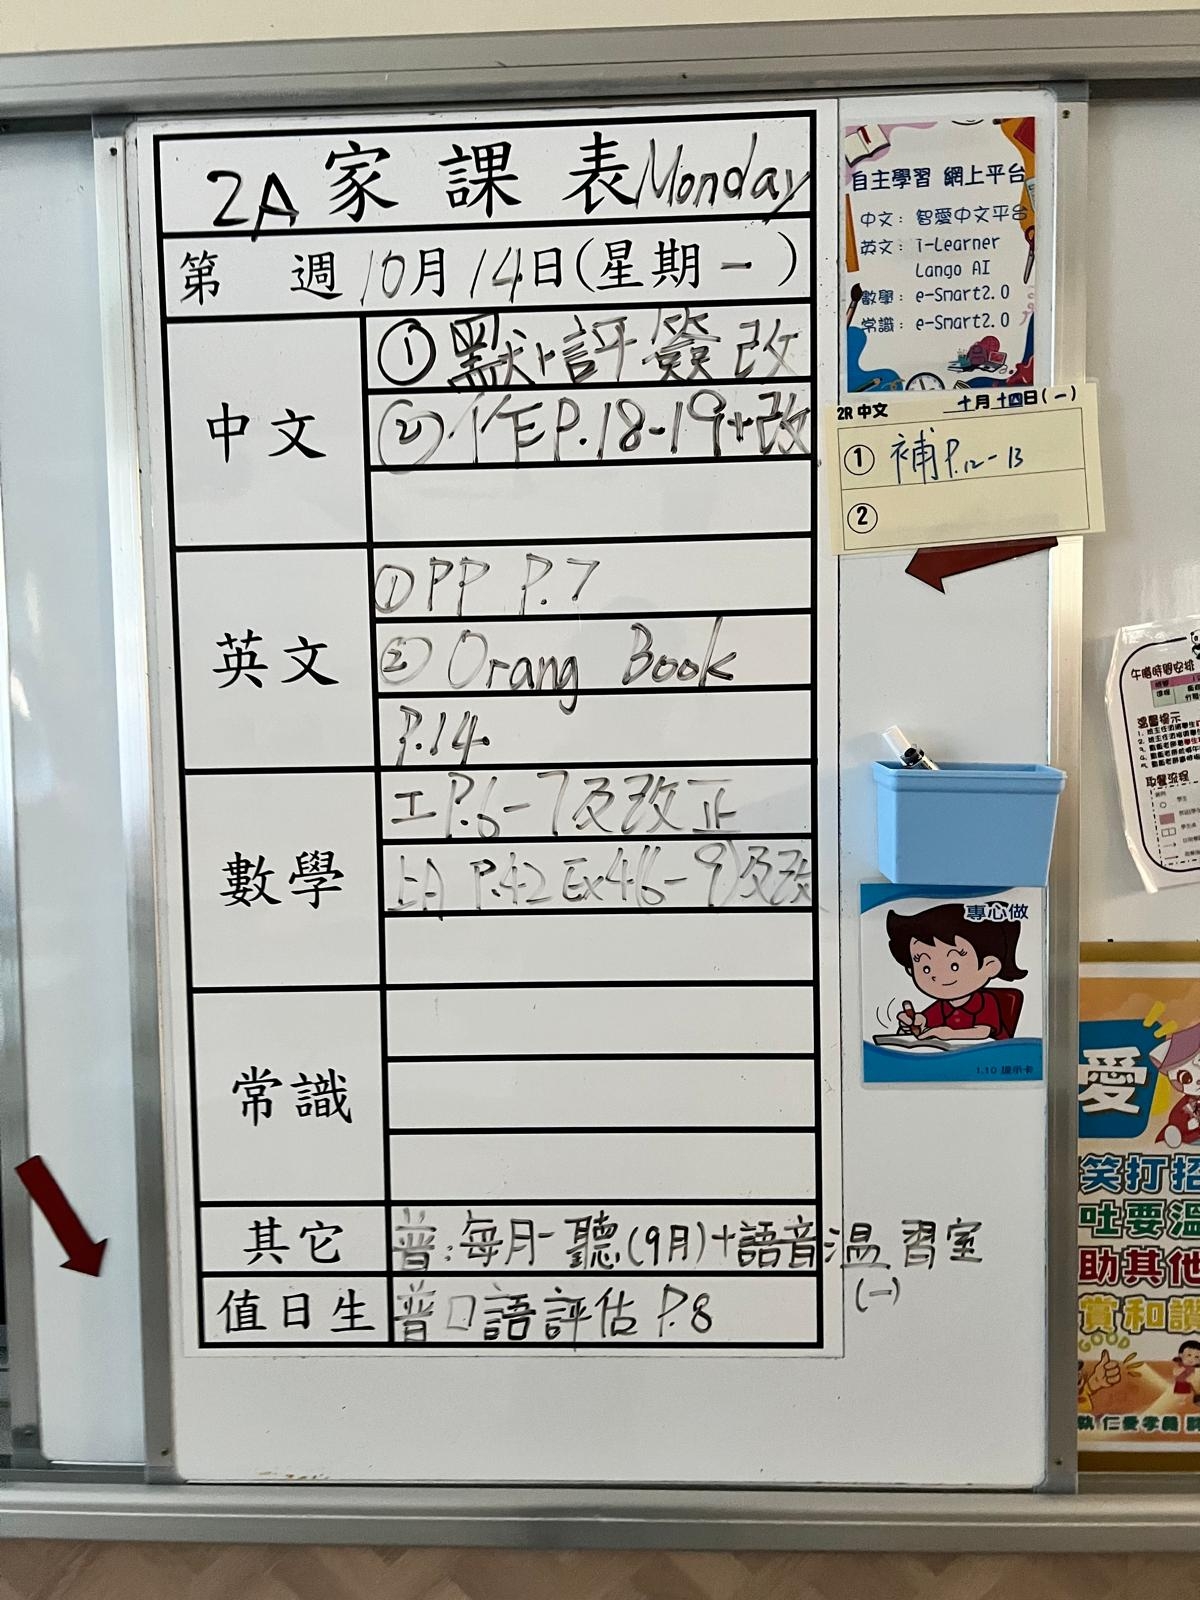 2A 家課表 Monday
第 週 10月14日(星期一)
中文
① 默評簽改
② 作E P.18-19+改
英文
① PP P.7
② Orang Book
P.14
數學
工 P.6-7及改正
上A P.42 Ex4(6-9)及改
常識
其它
普:每月一聽(9月)+語音溫習室
(一)
值日生
普口語評估 P.8
自主學習 網上平台
中文: 智愛中文平台
英文: i-Learner
Lango AI
數學: e-Smart2.0
常識: e-Smart2.0
2R 中文 十月十四日(一)
① 補 P.12-13
②
專心做
1.10 提示卡
午膳時間安排
溫馨提示
取餐流程
愛
笑打招
吐要溫
助其他
賞和讚
GOOD